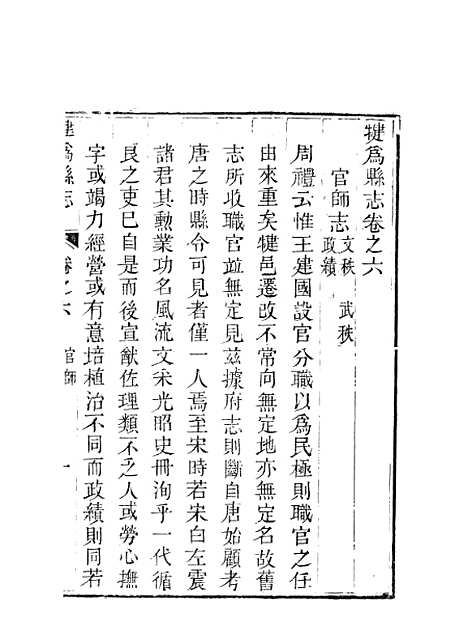 犍為縣志卷之六
官師志 文秩 武秩 政績
周禮云惟王建國設官分職以為民極則職官之任
由來重矣犍邑遷改不常向無定地亦無定名故舊
志所收職官並無定見茲據府志則斷自唐始顧考
唐之時縣令可見者僅一人焉至宋時若宋白左震
諸君其勲業功名風流文采光昭史冊洵乎一代循
良之吏巳自是而後宣猷佐理類不乏人或勞心撫
字或竭力經營或有意培植治不同而政績則同若
犍為縣志 卷之六 官師 一